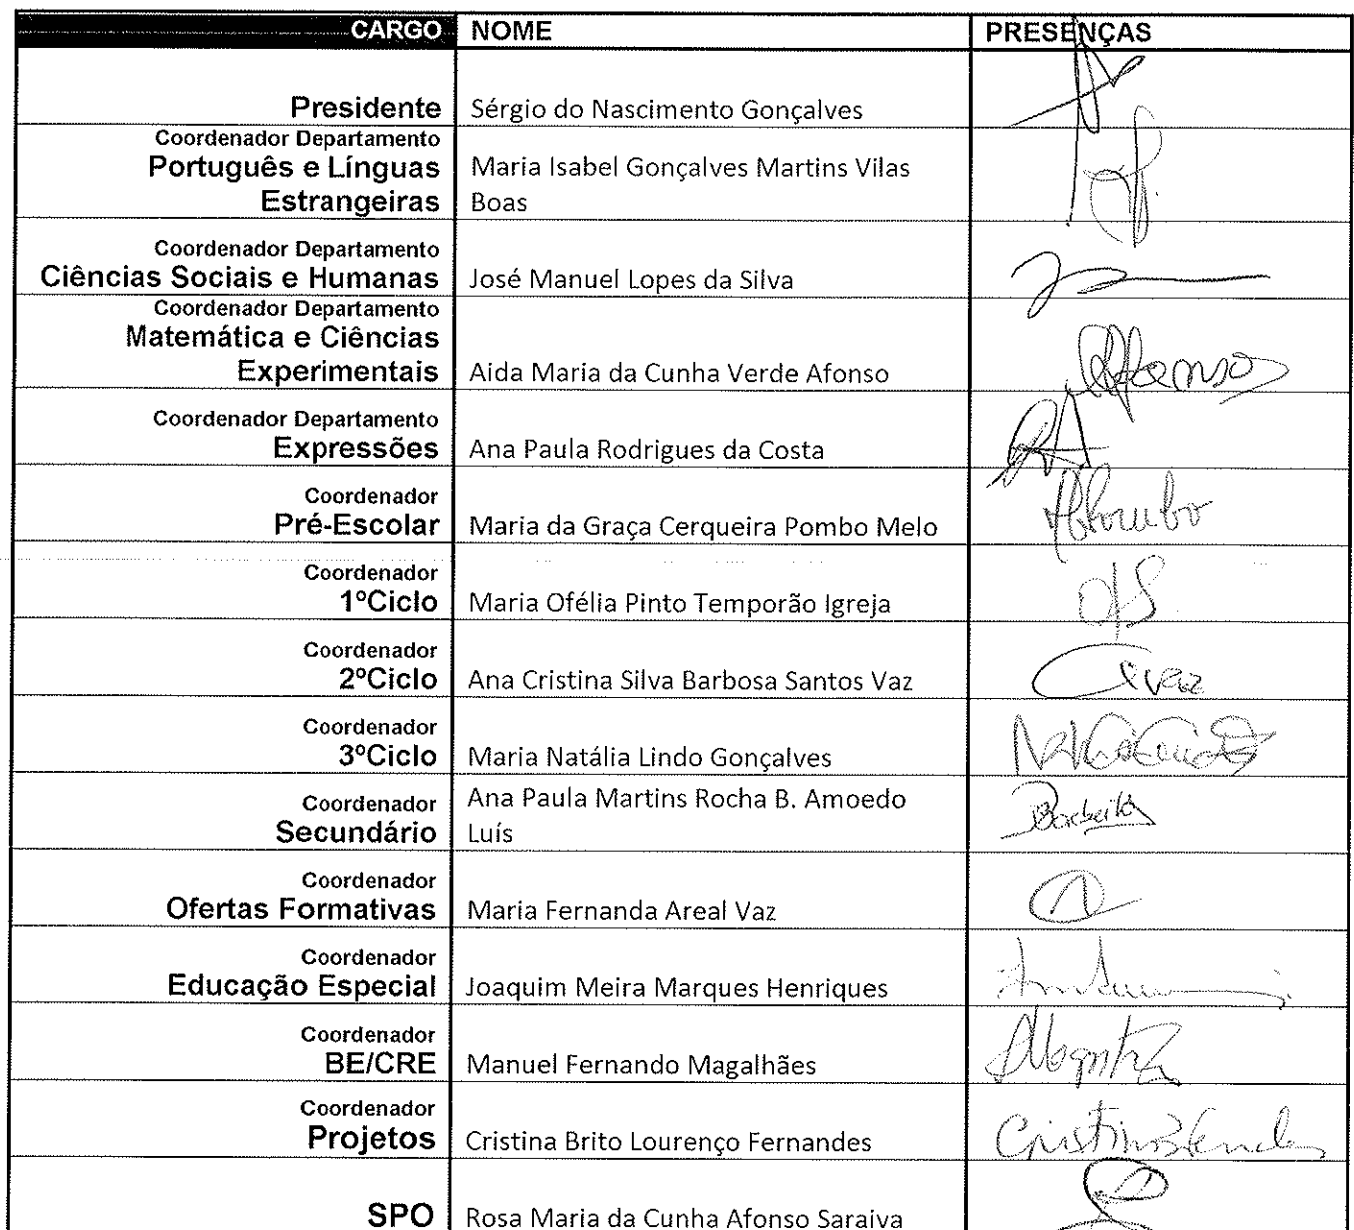 CARGO NOME PRESENÇAS
Presidente Sérgio do Nascimento Gonçalves
Coordenador Departamento
Português e Línguas Maria Isabel Gonçalves Martins Vilas
Estrangeiras Boas
Coordenador Departamento
Ciências Sociais e Humanas José Manuel Lopes da Silva
Coordenador Departamento
Matemática e Ciências
Experimentais Aida Maria da Cunha Verde Afonso Afonso
Coordenador Departamento
Expressões Ana Paula Rodrigues da Costa
Coordenador
Pré-Escolar Maria da Graça Cerqueira Pombo Melo
Coordenador
1ºCiclo Maria Ofélia Pinto Temporão Igreja
Coordenador
2ºCiclo Ana Cristina Silva Barbosa Santos Vaz
Coordenador
3ºCiclo Maria Natália Lindo Gonçalves
Coordenador Ana Paula Martins Rocha B. Amoedo
Secundário Luís
Coordenador
Ofertas Formativas Maria Fernanda Areal Vaz
Coordenador
Educação Especial Joaquim Meira Marques Henriques
Coordenador
BE/CRE Manuel Fernando Magalhães
Coordenador
Projetos Cristina Brito Lourenço Fernandes
SPO Rosa Maria da Cunha Afonso Saraiva